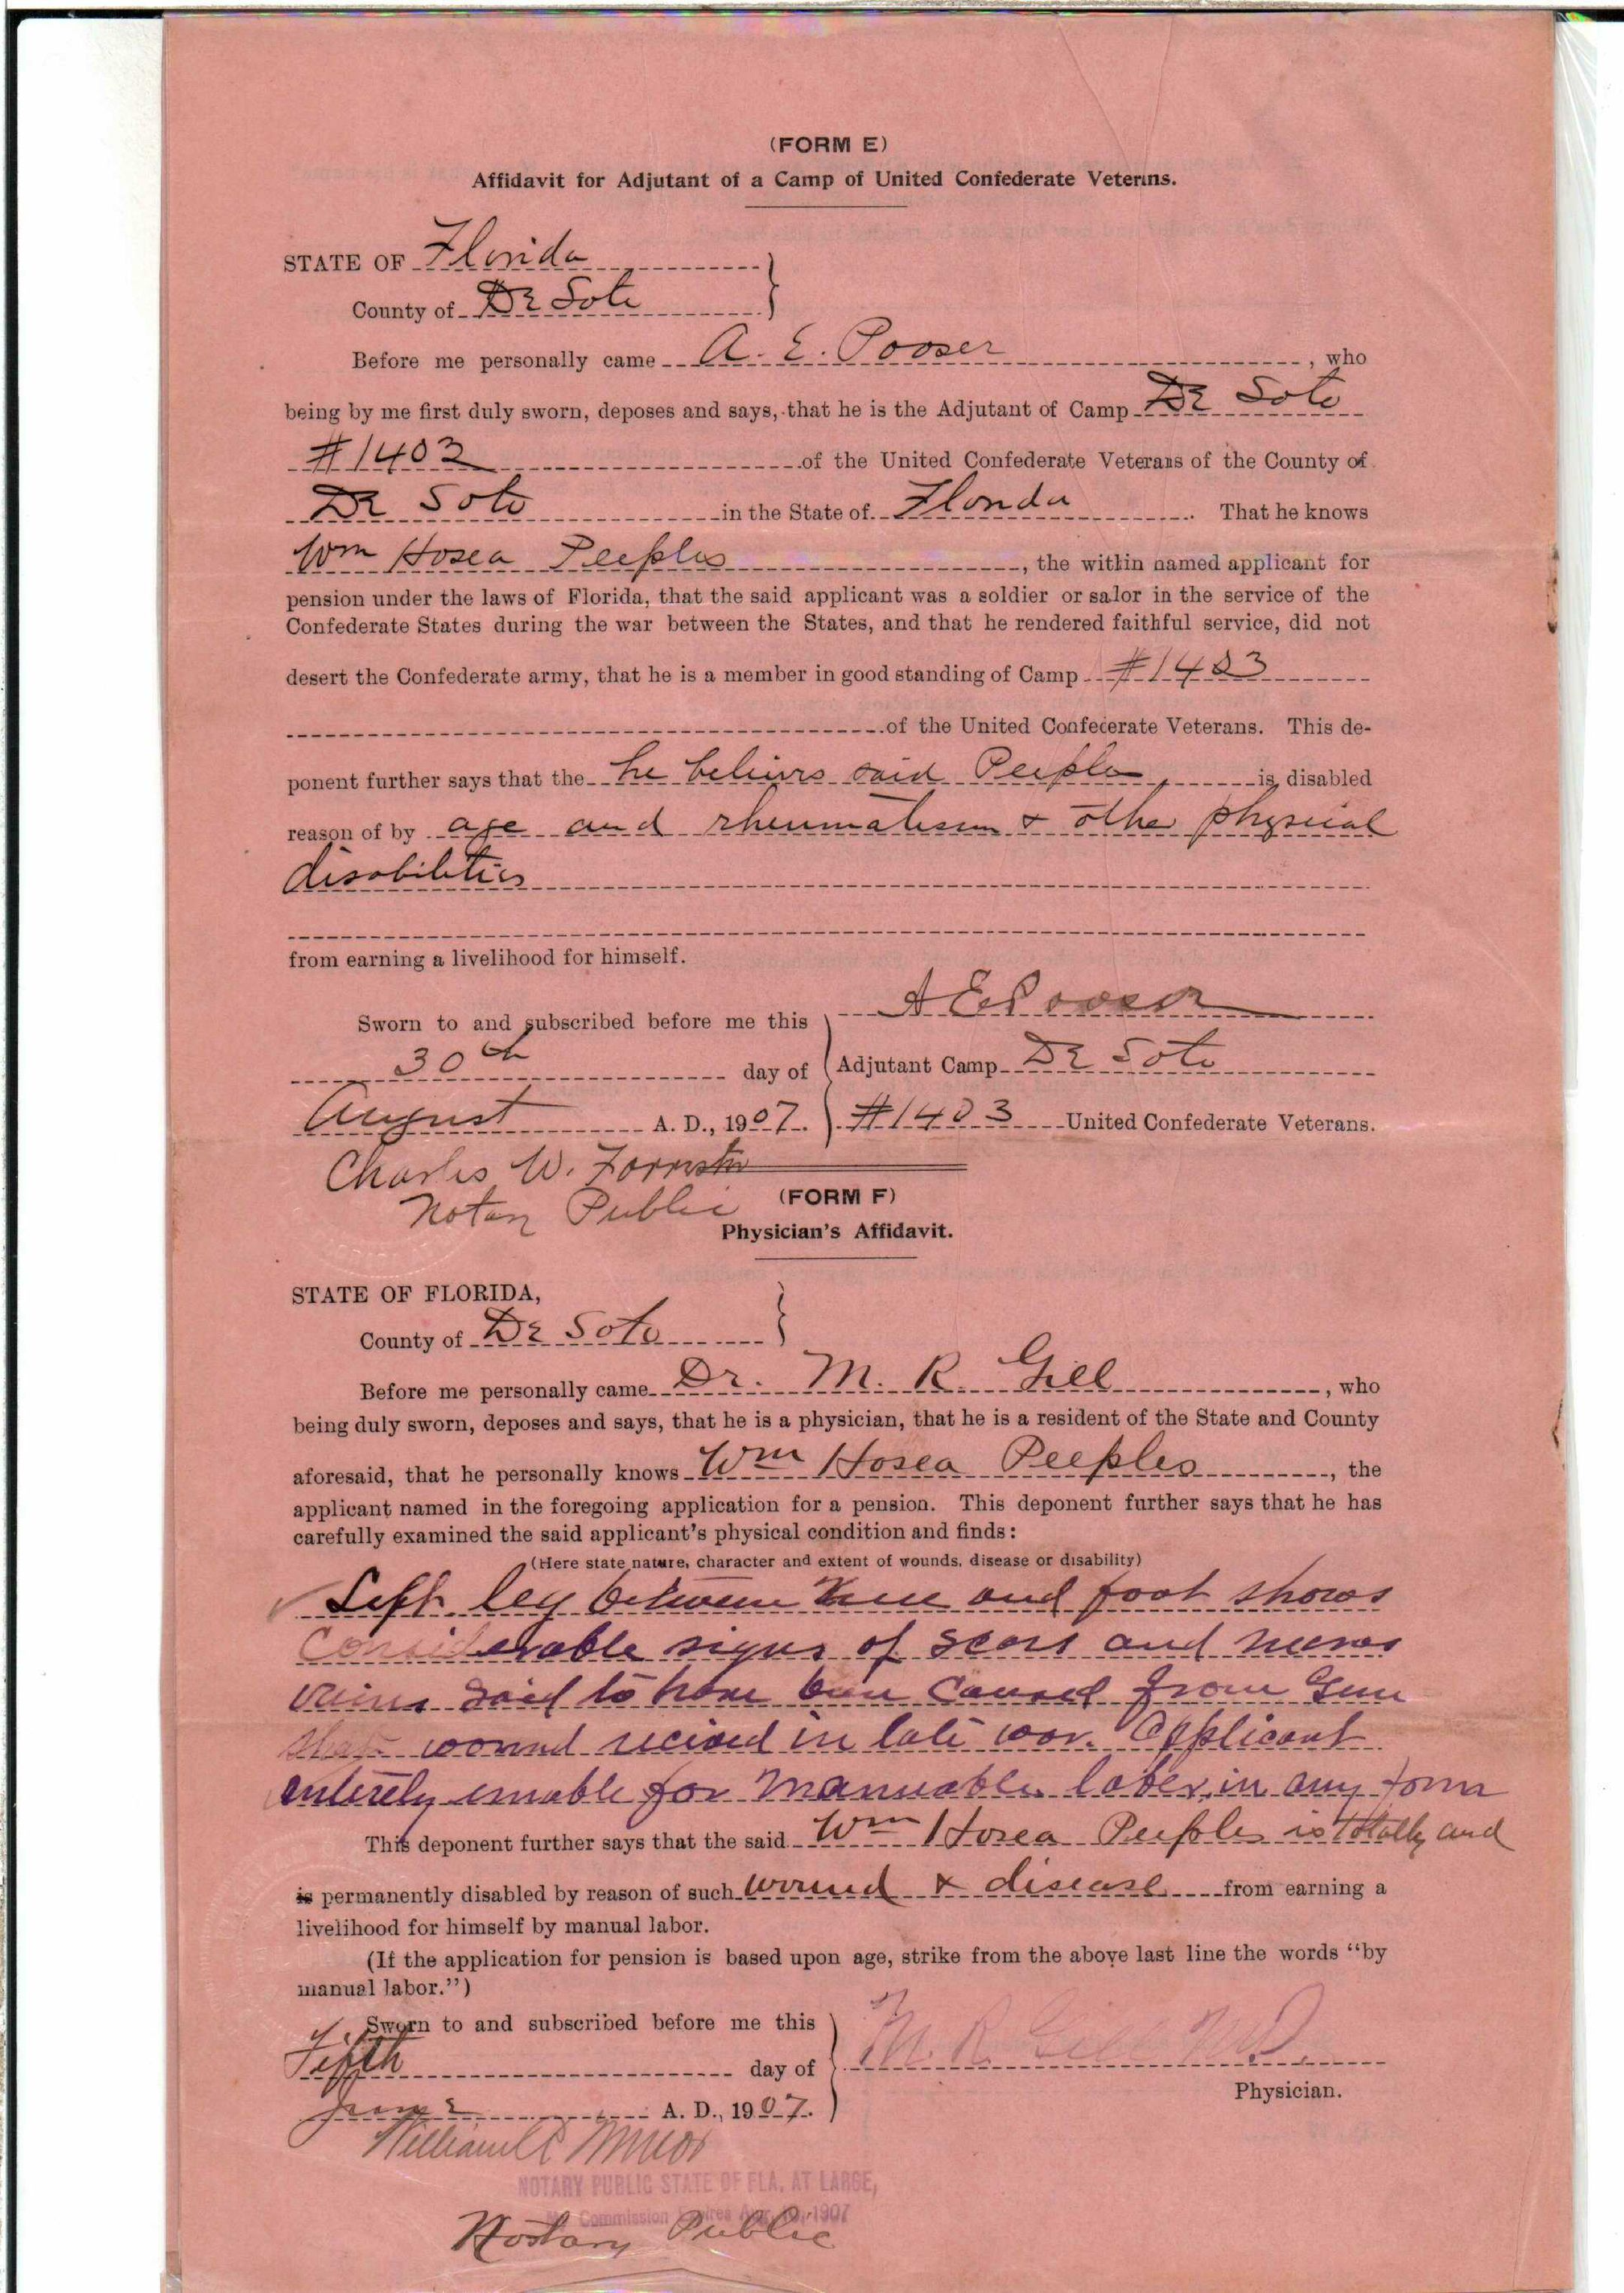 (FORM E)
Affidavit for Adjutant of a Camp of United Confederate Veterans.
STATE OF Florida
County of De Soto
Before me personally came A. E. Pooser, who
being by me first duly sworn, deposes and says, that he is the Adjutant of Camp De Soto
#1403 of the United Confederate Veterans of the County of
De Soto in the State of Florida. That he knows
Wm Hosea Peeples, the within named applicant for
pension under the laws of Florida, that the said applicant was a soldier or salor in the service of the
Confederate States during the war between the States, and that he rendered faithful service, did not
desert the Confederate army, that he is a member in good standing of Camp #1403
of the United Confederate Veterans. This de-
ponent further says that the he believes said Peeples is disabled
reason of by age and rheumatism & other physical
disabilities
from earning a livelihood for himself.
A E Pooser
Sworn to and subscribed before me this
30th day of Adjutant Camp De Soto
August A. D., 1907. #1403 United Confederate Veterans.
Charles W. Forrester
Notary Public
(FORM F)
Physician's Affidavit.
STATE OF FLORIDA,
County of De Soto
Before me personally came Dr. M. R. Gill, who
being duly sworn, deposes and says, that he is a physician, that he is a resident of the State and County
aforesaid, that he personally knows Wm Hosea Peeples, the
applicant named in the foregoing application for a pension. This deponent further says that he has
carefully examined the said applicant's physical condition and finds:
(Here state nature, character and extent of wounds, disease or disability)
Left leg between knee and foot shows
Considerable signs of scars and
veins said to have been caused from Gun
shot wound recived in late war. Applicant
entirely unable for Manuable labor in any form
This deponent further says that the said Wm Hosea Peeples is totally and
is permanently disabled by reason of such wound & disease from earning a
livelihood for himself by manual labor.
(If the application for pension is based upon age, strike from the above last line the words "by
manual labor.")
Sworn to and subscribed before me this
Fifth day of M. R. Gill M.D.
Physician.
June A. D., 1907.
William
NOTARY PUBLIC STATE OF FLA, AT LARGE,
My Commission Expires Aug. 1907
Notary Public